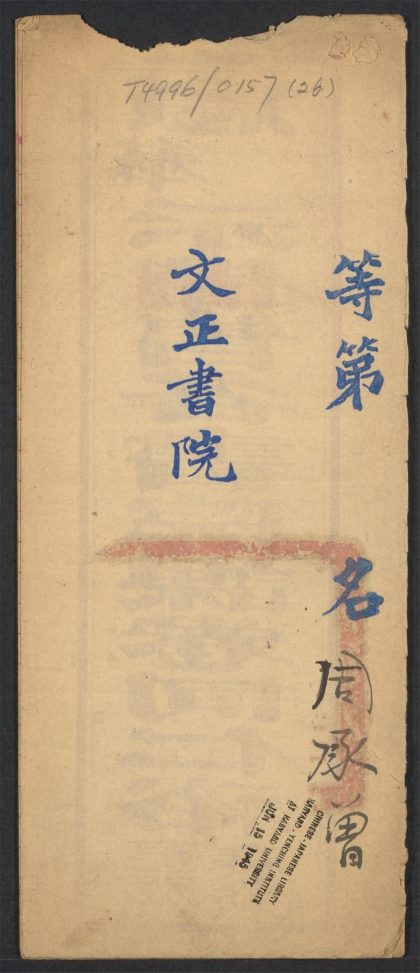 T4996/0157 (26)
等第　名 周承曾
文正書院
CHINESE-JAPANESE LIBRARY
HARVARD-YENCHING INSTITUTE
AT HARVARD UNIVERSITY
JUN 15 1945